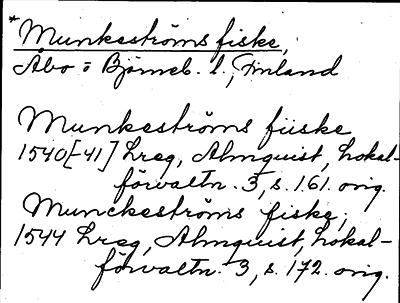 * Munkeströms fiske,
Åbo o Björneb. l., Finland
Munkeströms fiiske
1540[-41] Lreg, Almquist, Lokal-
förvaltn. 3, s. 161. orig.
Munckeströms fiske,
1544 Lreg, Almquist, Lokal-
förvaltn. 3, s. 172. orig.